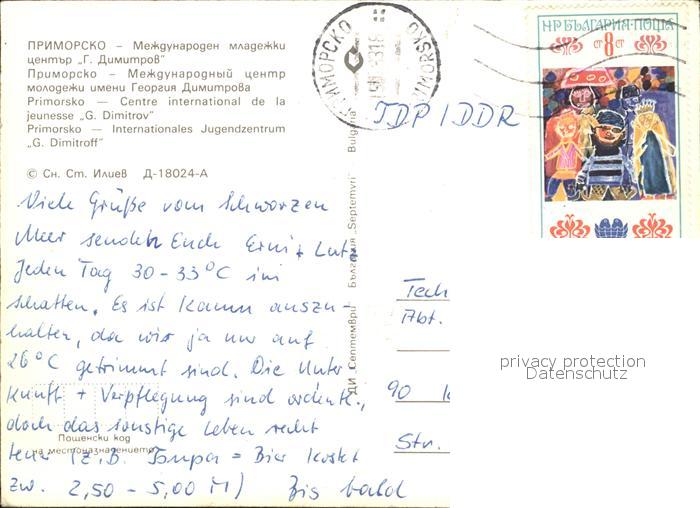 ПРИМОРСКО – Международен младежки
център „Г. Димитров"
Приморско – Международный центр
молодежи имени Георгия Димитрова
Primorsko – Centre international de la
jeunesse „G. Dimitrov"
Primorsko – Internationales Jugendzentrum
„G. Dimitroff"
© Сн. Ст. Илиев Д-18024-А
Viele Grüße vom Schwarzen
Meer senden Euch Erni + Lutz
Jeden Tag 30-33°C im
Schatten. Es ist kaum auszu-
halten, da wir ja nur auf
26°C getrimmt sind. Die Unter
kunft + Verpflegung sind ordentl.,
doch das sonstige Leben recht
teuer (z.B. Бира = Bier kostet
zw. 2,50 – 5,00 M) Bis bald
Пощенски код
на местоназначението
ДИ „Септември" България „Septemvri" Bulgaria
ПРИМОРСКО
PRIMORSKO
НР БЪЛГАРИЯ · ПОЩА
СТ 8 СТ
ГДР / DDR
Tech
Abt.
90
Str.
privacy protection
Datenschutz